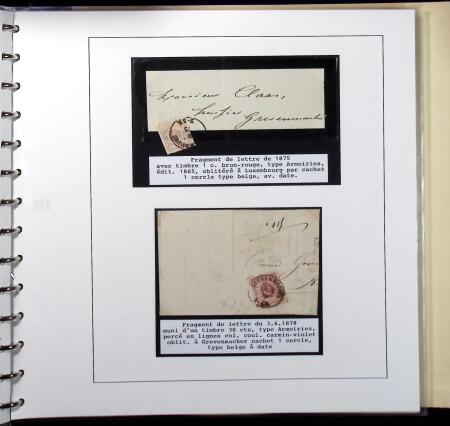 Monsieur Claas,
Grevenmacher
Fragment de lettre de 1875
avec timbre 1 c. brun-rouge, type Armoiries,
édit. 1865, oblitéré à Luxembourg par cachet
1 cercle type belge, av. date.
Fragment de lettre du 3.4.1878
muni d'un timbre 30 cts, type Armoiries,
percé en lignes col. coul. carmin-violet
oblit. à Grevenmacher cachet 1 cercle,
type belge à date